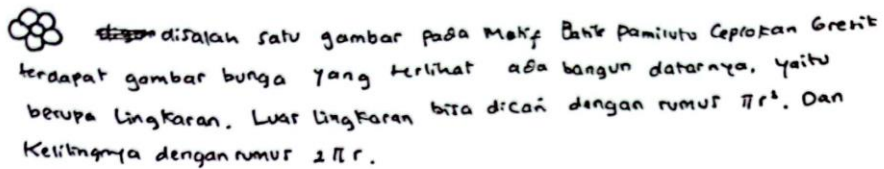 disalah satu gambar pada Motif Batik Pamiluto Ceplokan Gresik
terdapat gambar bunga yang terlihat ada bangun datarnya, yaitu
berupa lingkaran. Luas lingkaran bisa dicari dengan rumus πr². Dan
Kelilingnya dengan rumus 2πr.